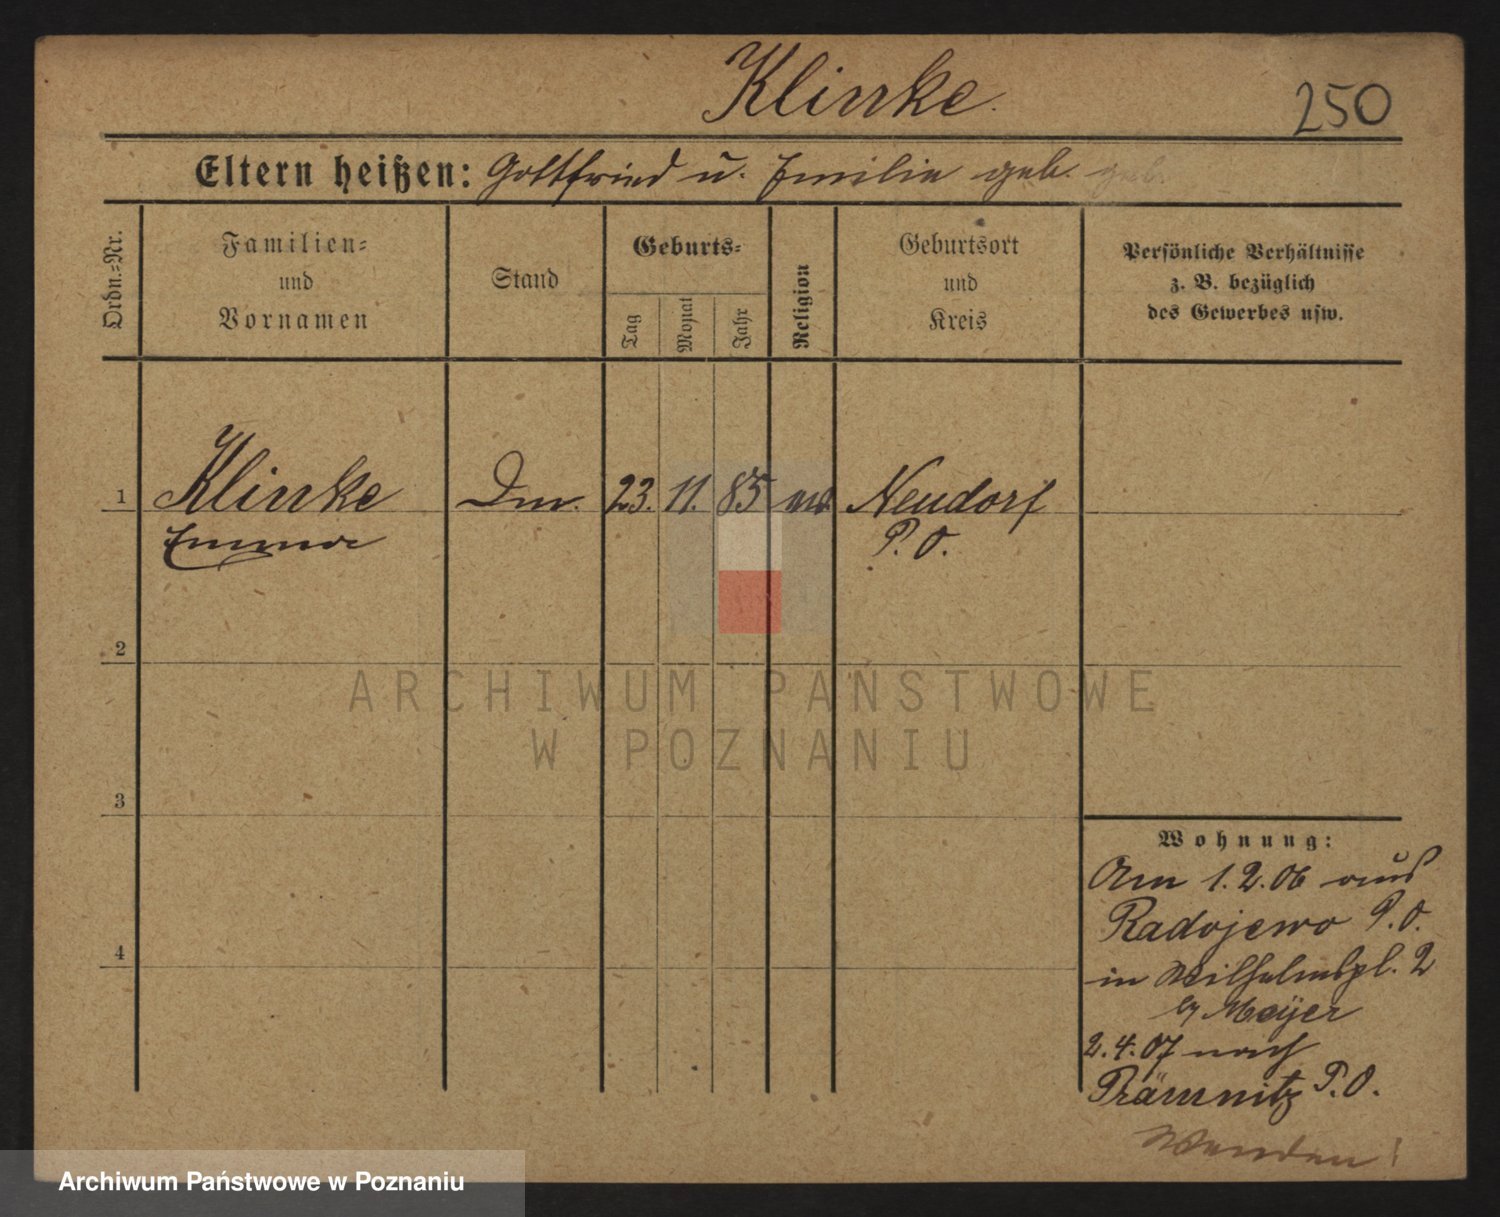 Klinke.
250
Eltern heißen: Gottfried u. Emilie geb. geb.
Ordn.=Nr.
Familien=
und
Vornamen
Stand
Geburts=
Tag
Monat
Jahr
Religion
Geburtsort
und
Kreis
Persönliche Verhältnisse
z. B. bezüglich
des Gewerbes usw.
1
Klinke
Emma
23. 11. 85
Neudorf
P. O.
2
3
4
Wohnung:
Am 1.2.06 aus
Radojewo P.O.
in Wilhelmspl. 2
Meÿer
2.4.07 nach
P.O.
Wenden!
ARCHIWUM PAŃSTWOWE
W POZNANIU
Archiwum Państwowe w Poznaniu